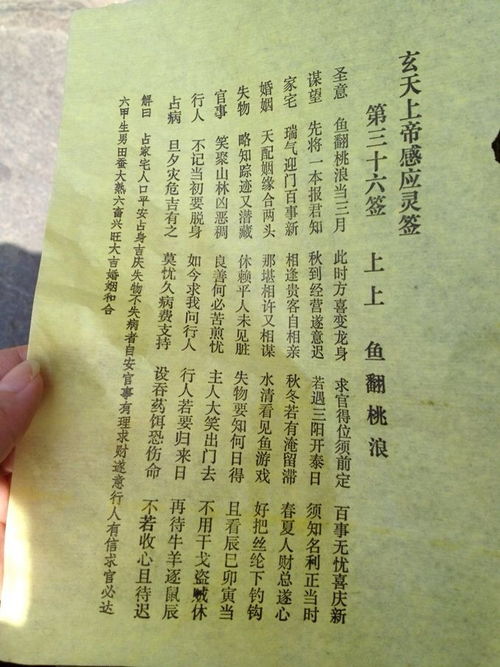 玄天上帝感应灵签
第三十六签 上上 鱼翻桃浪
圣意 鱼翻桃浪当三月 此时方喜变龙身 求官得位须前定 百事无忧喜庆新
谋望 先将一本报君知 秋到经营遂意迟 若遇三阳开泰日 须知名利正当时
家宅 瑞气迎门百事新 相逢贵客自相亲 秋冬若有淹留滞 春夏人财总遂心
婚姻 天配姻缘合两头 那堪相许又相谋 水清看见鱼游戏 好把丝纶下钓钩
失物 略知踪迹又潜藏 休赖平人未见脏 失物要知何日得 且看辰巳卯寅当
官事 笑聚山林凶恶稠 良善何必苦煎忧 主人大笑出门去 不用干戈盗贼休
行人 不记当初要脱身 如今求我问行人 行人若要归来日 再待牛羊逐鼠辰
占病 旦夕灾危吉有之 莫忧久病费支持 设吞药饵恐伤命 不若收心且待迟
解曰 占家宅人口平安占身吉庆失物不失病者自安官事有理求财遂意行人有信求官必达
六甲生男田蚕大熟六畜兴旺大吉婚姻和合